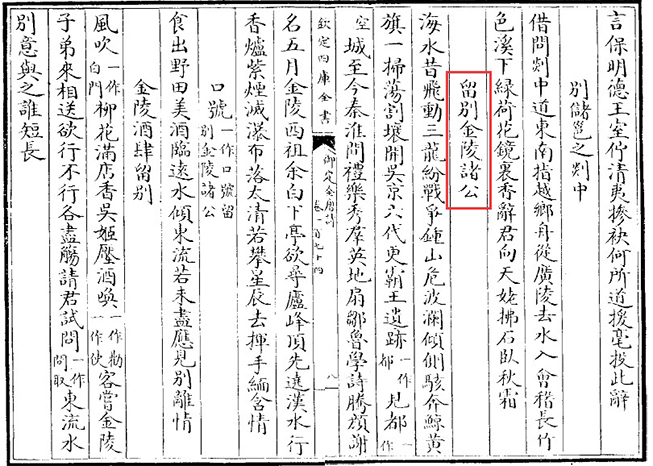 言保明德王室佇清夷摻袂何所道援毫投此辭
別儲邕之剡中
借問剡中道東南指越鄉舟從廣陵去水入會稽長竹
色溪下綠荷花鏡裏香辭君向天姥拂石臥秋霜
留別金陵諸公
海水昔飛動三龍紛戰爭鍾山危波瀾傾側駭奔鯨黃
旗一掃蕩割壤開吳京六代更霸王遺跡一作都見都一作
空城至今秦淮間禮樂秀羣英地扇鄒魯學詩騰顔謝
欽定四庫全書 御定全唐詩 卷一百七十四 八
名五月金陵西祖余白下亭欲尋廬峰頂先遶漢水行
香爐紫煙滅瀑布落太清若攀星辰去揮手緬含情
口號一作口號留別金陵諸公
食出野田美酒臨遠水傾東流若未盡應見別離情
金陵酒肆留別
風吹一作白門柳花滿店香吳姬壓酒喚一作勸一作使客嘗金陵
子弟來相送欲行不行各盡觴請君試問一作問取東流水
別意與之誰短長